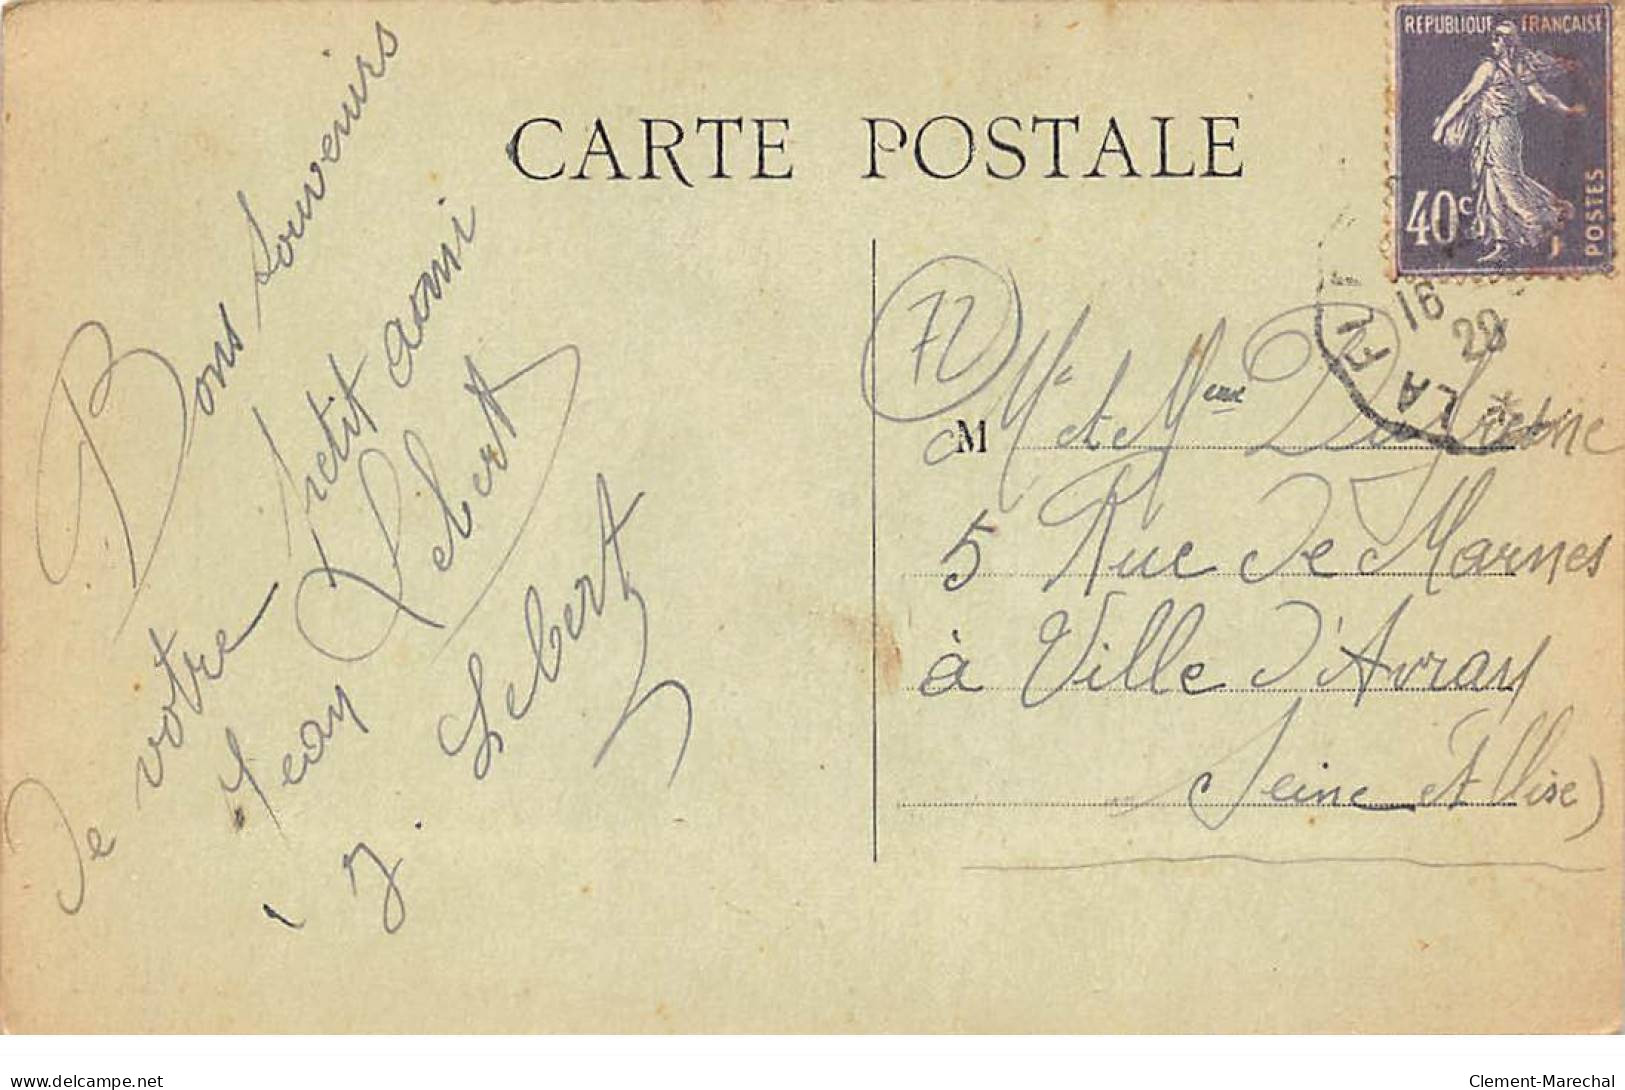 CARTE POSTALE
REPUBLIQUE FRANÇAISE
40c
POSTES
16
LA F
Bons Souvenirs
De votre petit ami
Jean Lebert
J. Lebert
72
M Mr et Mme
5 Rue de Marnes
à Ville d'Avray
Seine et Oise)
delcampe.net
Clement-Marechal